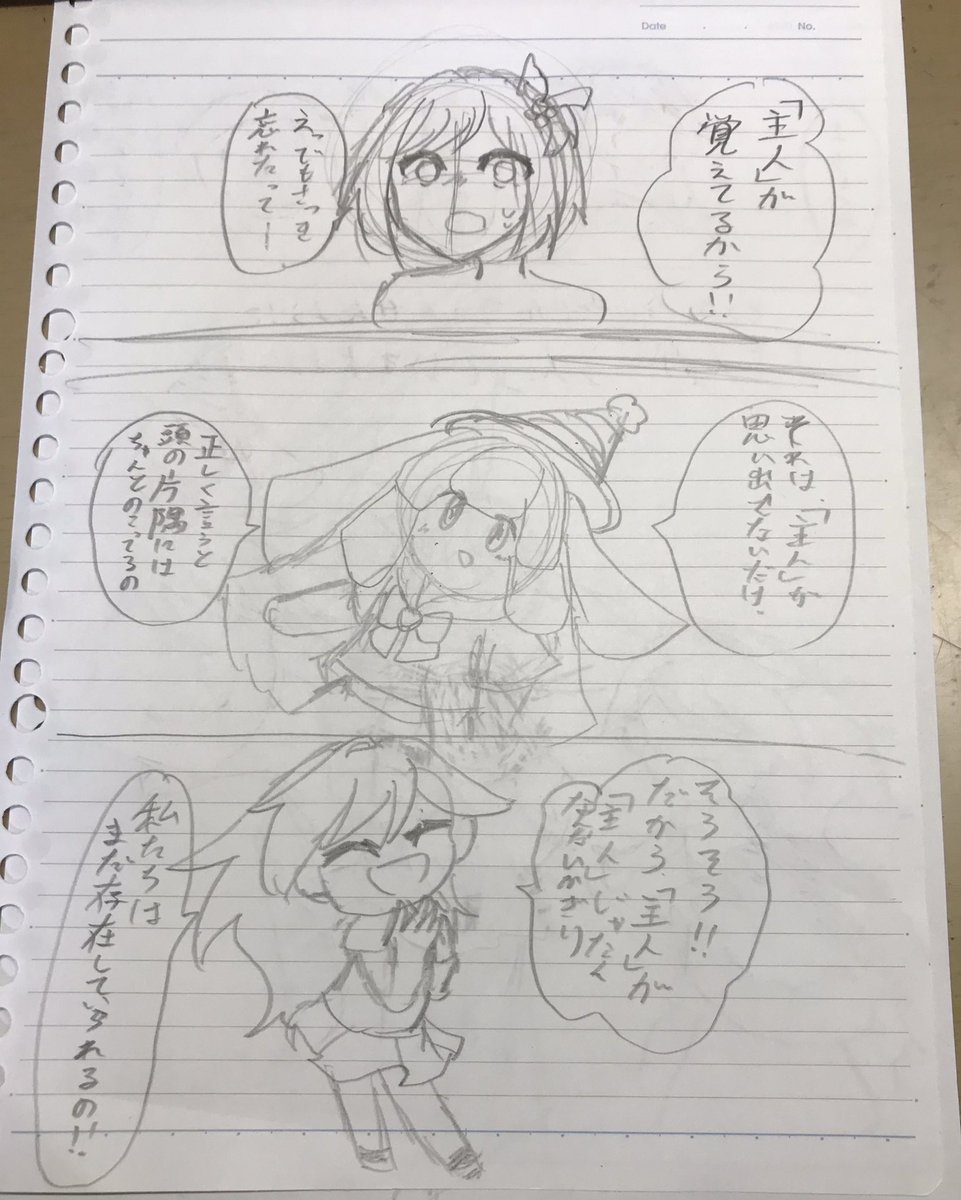 Date
No.
「主人」が
覚えてるから!!
えっでもさっき
忘れたってー
それは、「主人」が
思い出せないだけ。
正しく言うと
頭の片隅には
ちゃんとのこってるの
そろそろ!!
だから、「主人」が
「主人」じゃなく
ならないかぎり
私たちは
まだ存在していられるの!!